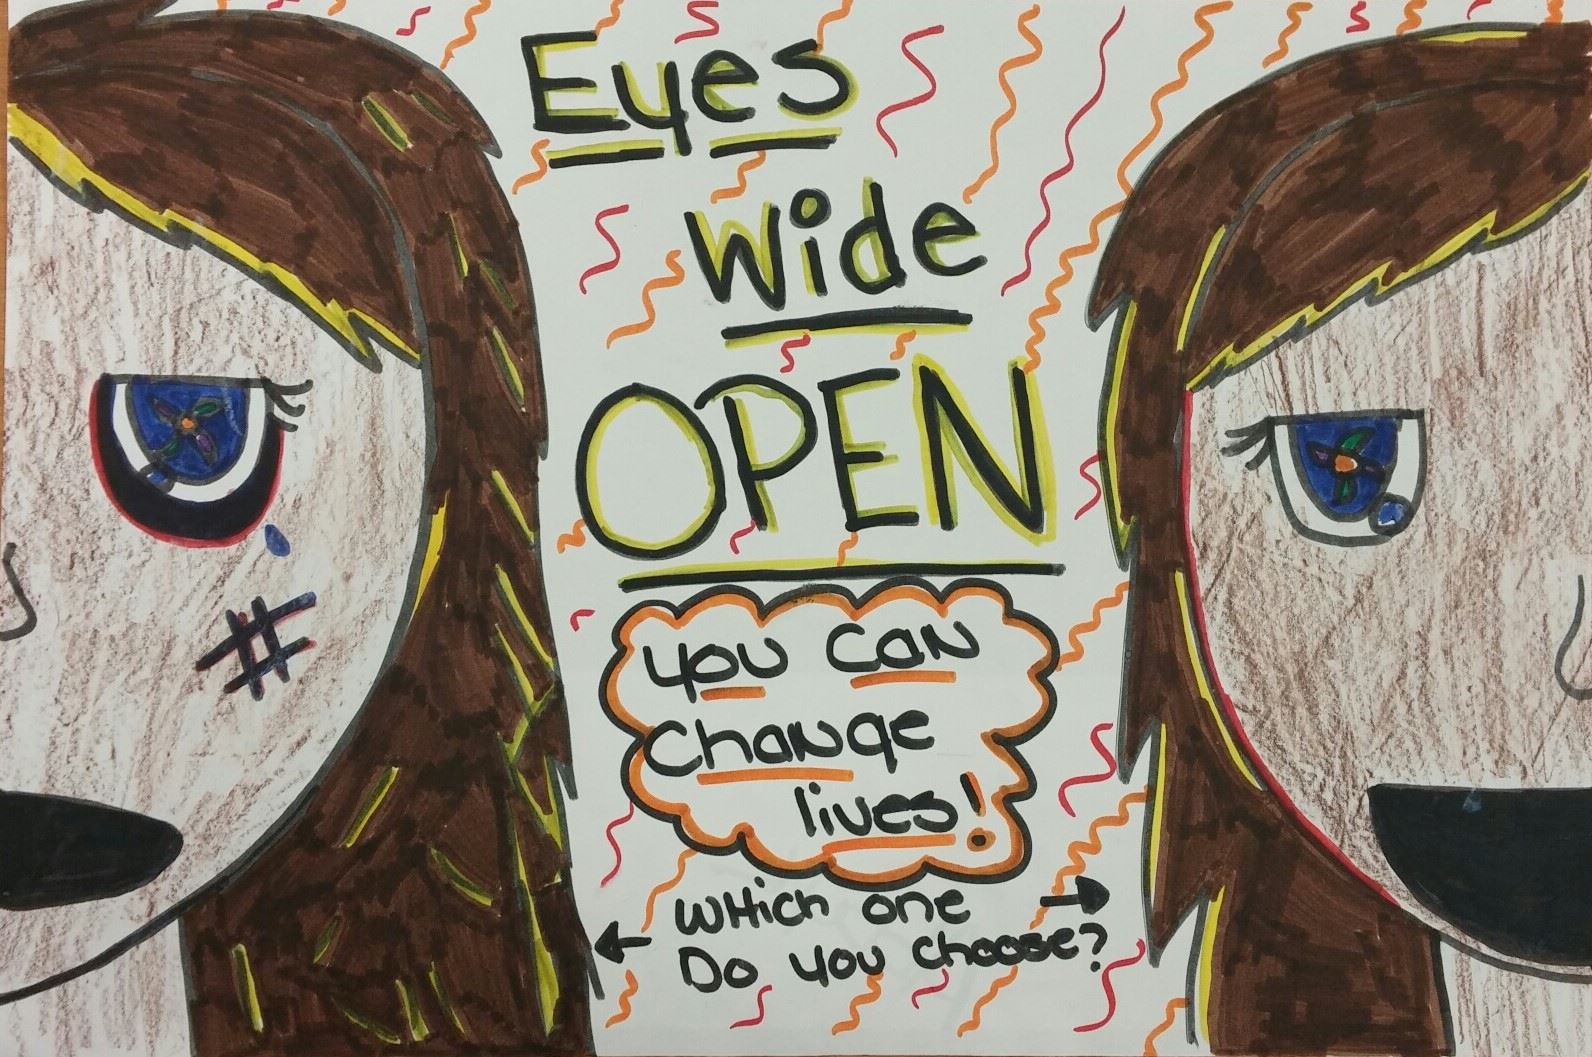 Eyes
Wide
OPEN
you can
change
lives!
WHich one
Do you choose?
#